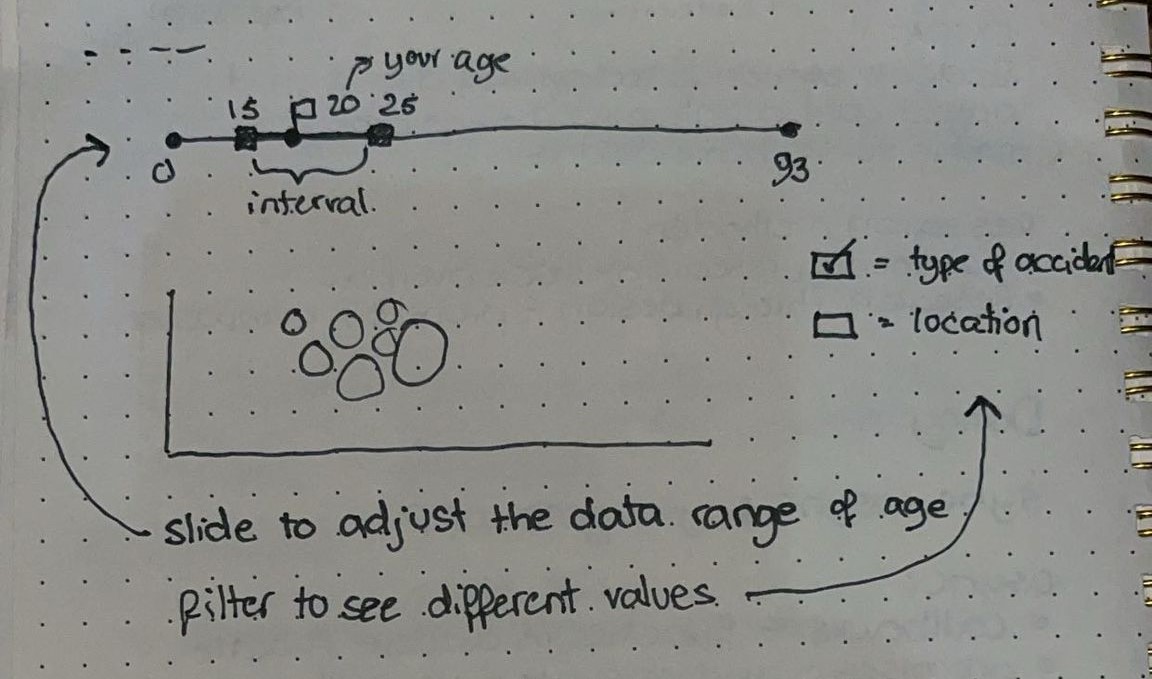 your age
15 20 25
0 93
interval.
☑ = type of accident
☐ = location
slide to adjust the data range of age
filter to see different values